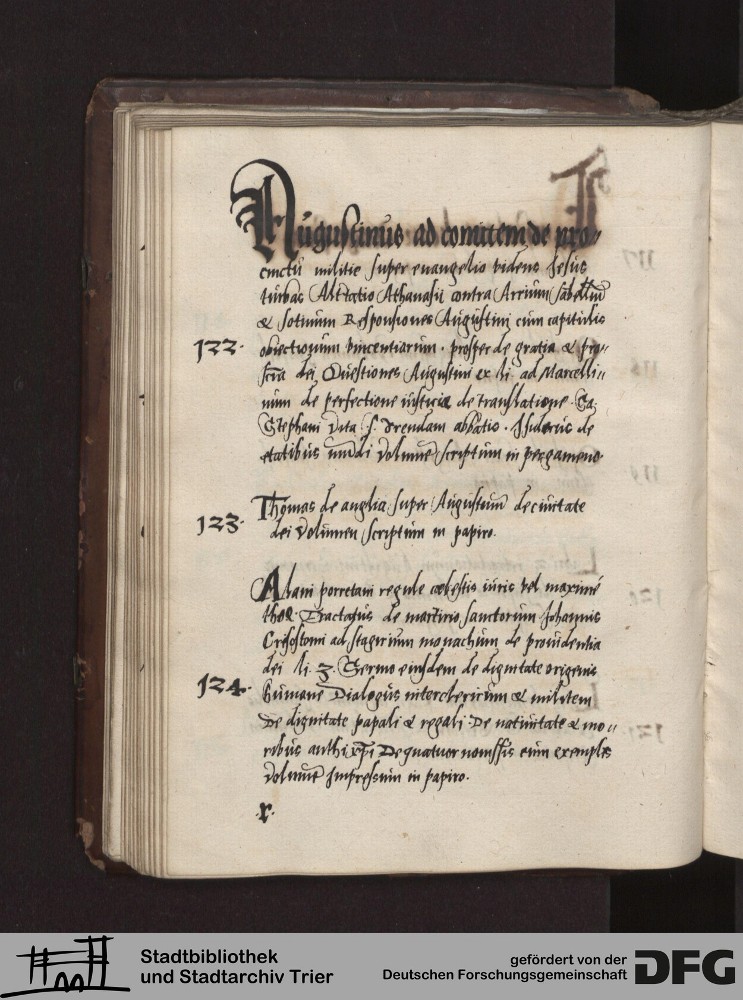 Augustinus ad comitem de pro//
cinctu militie super euangelio videns Jesus
turbas Altcatio Athanasii contra Arrium sabelliū
& fotinum Responsiones Augustini cum capitulis
122. obiectionum vincentiarum. prosper de gratia & pre//
scia dei Questiones Augustini ex li. ad Marcelli//
num de perfectione iusticie de translatione
Stephani vita s. abbatio. Isiderus de
etatibus mūdi volumē scriptum in pergameno.
Thomas de anglia super Augustinū de ciuitate
123. dei Volumen scriptum in papiro.
Alani porretani regule cœlestis iuris vel maxime
theo. Tractatus de martirio sanctorum Johannis
Crisostomi ad stagirium monachum de prouidentia
dei li. 3. Sermo eiusdem de dignitate origenis
124. humane Dialogus inter clericum & militem
De dignitate papali & regali De natiuitate & mo//
ribus anthixp̄i De quatuor nouissis cum exemplis
volumē Impressum in papiro.
.r.
Stadtbibliothek
und Stadtarchiv Trier
gefördert von der
Deutschen Forschungsgemeinschaft
DFG